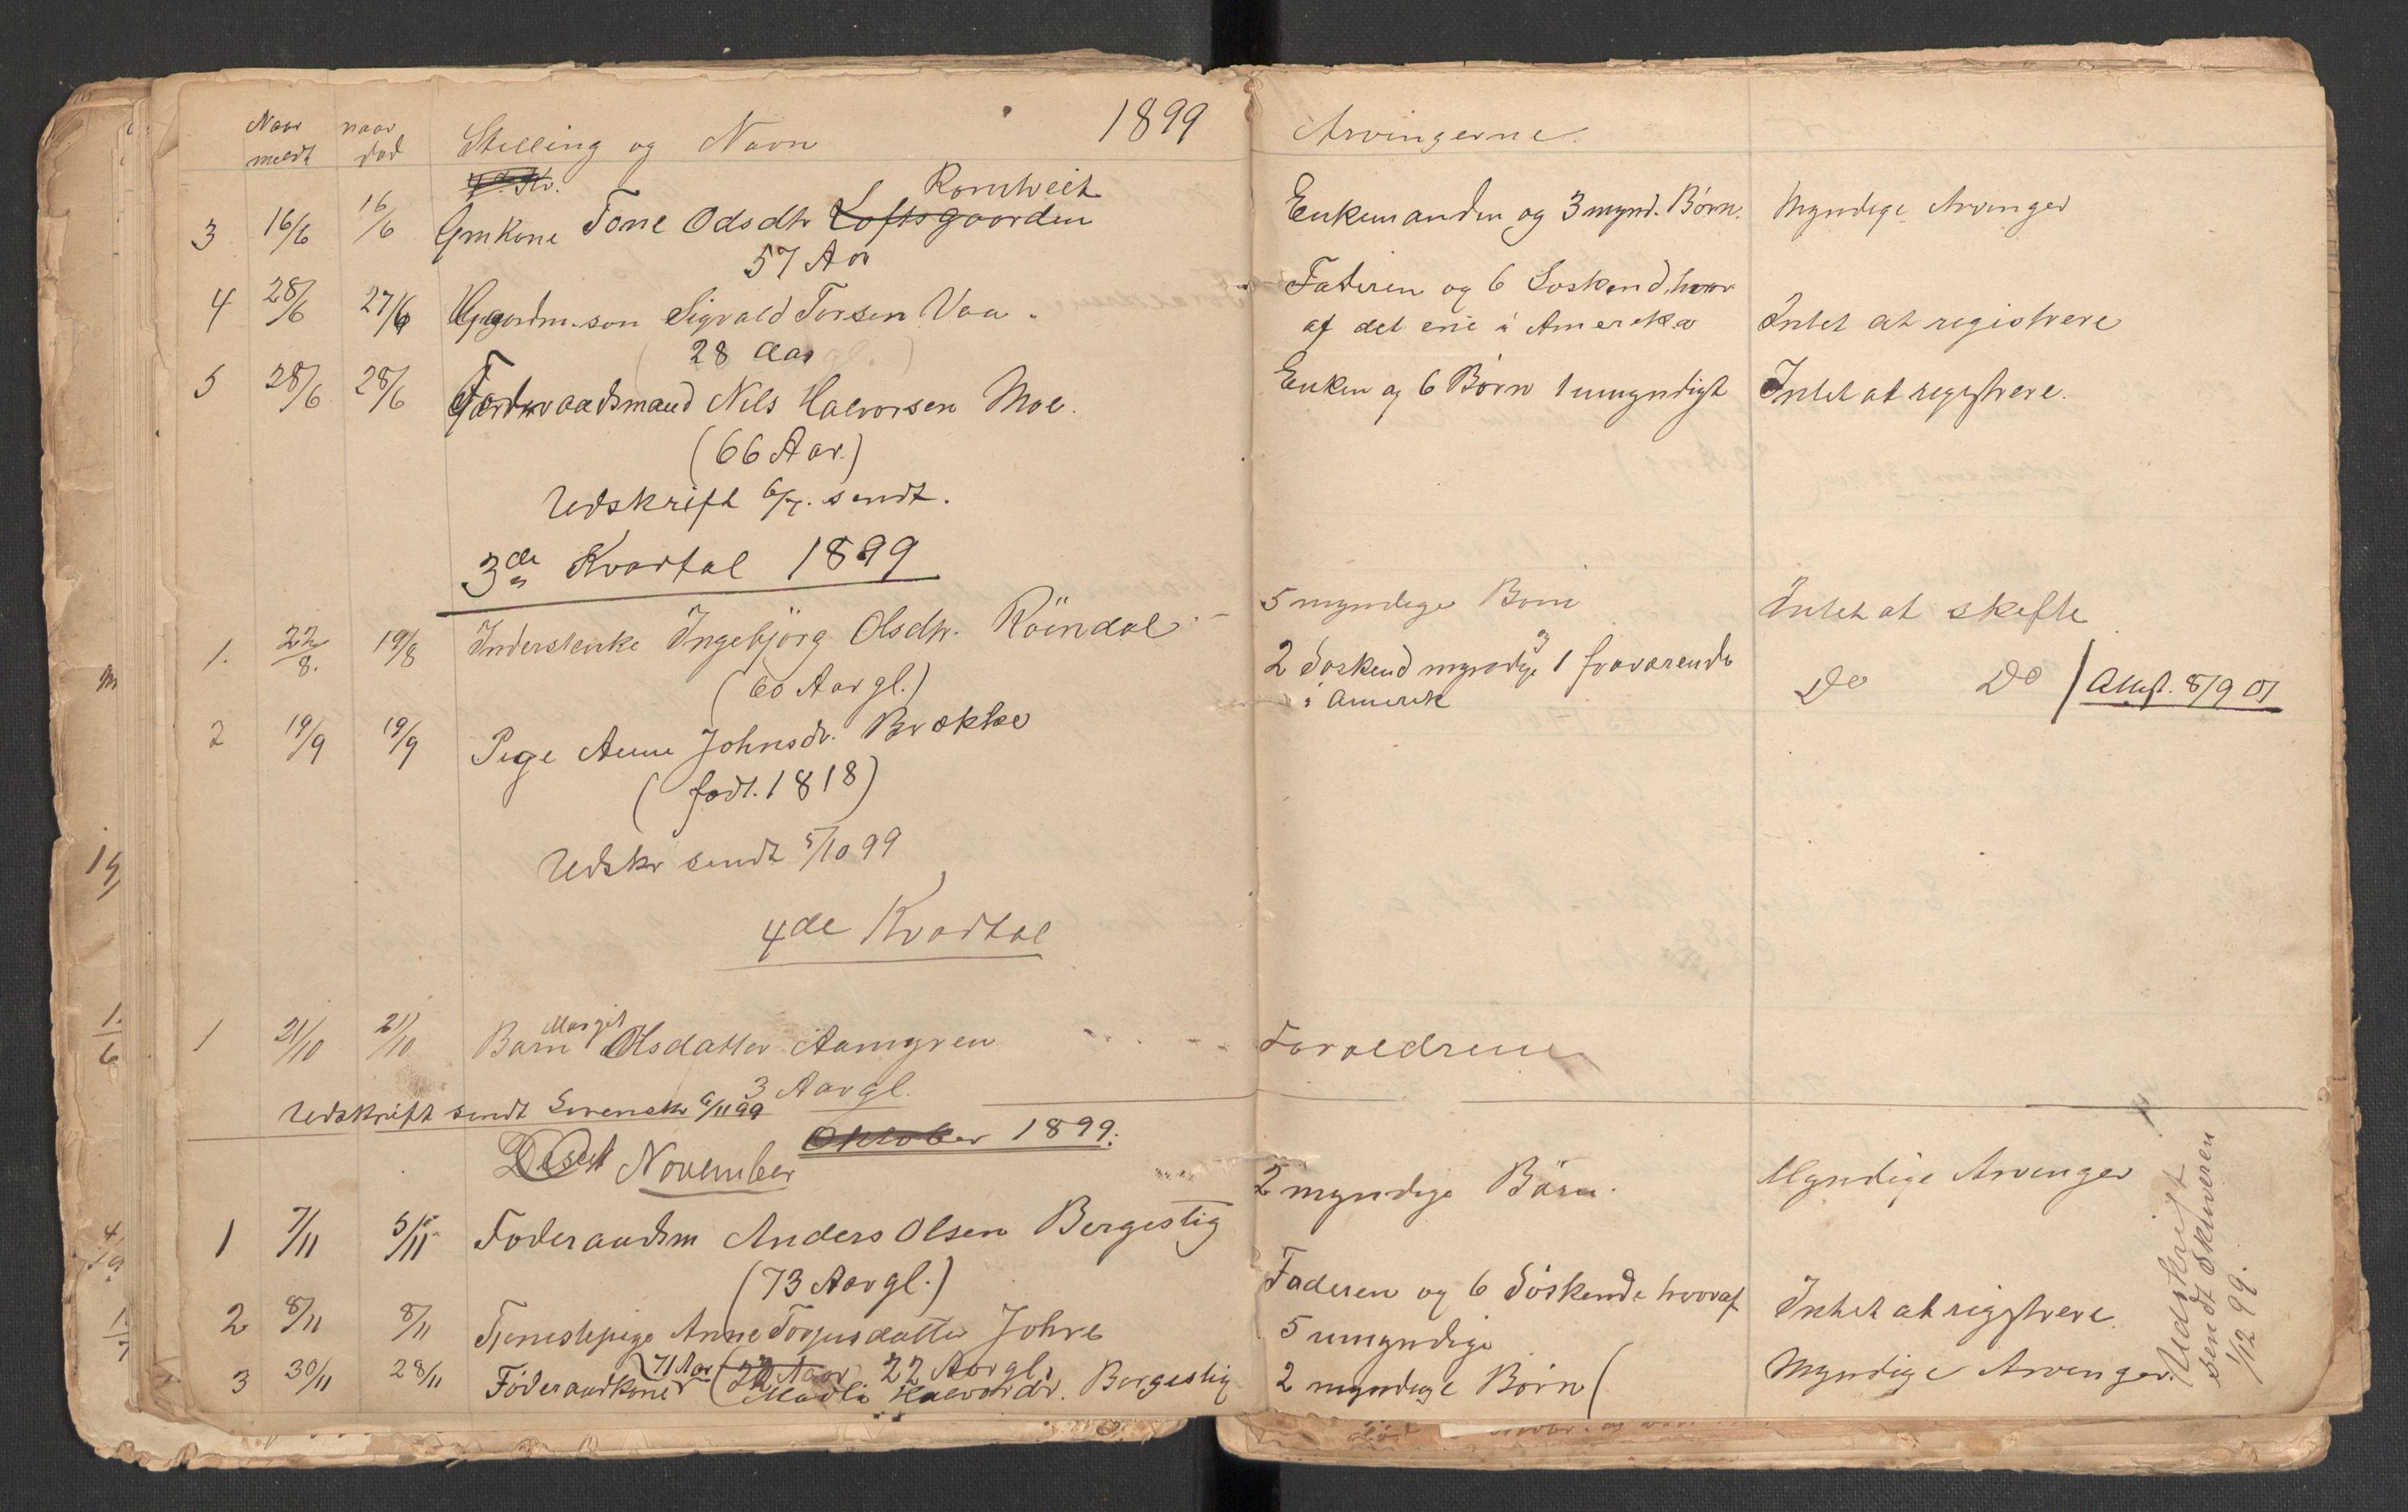 1899
Naar meldt
naar død
Stilling og Navn
Arvingerne.
3 16/6 16/6 Gmkone Tone Odsdtr Loftsgaarden Romtveit
57 Aar
Enkemanden og 3 mynd. Børn.
Myndige Arvinger
4 28/6 27/6 Gaardm.søn Sigvald Torsen Vaa.
28 Aar
Faderen og 6 Søskend, hvor
af det ene i Amerika
Intet at registrere
5 28/6 28/6 Føderaadsmand Nils Halvorsen Moe.
(66 Aar.)
Enken og 6 Børn 1 umyndigt
Intet at registrere.
Udskrift 6/7. sendt.
3de Kvartal 1899
1. 22/8. 19/8 Inderstenke Ingebjörg Olsdtr. Röindal
(60 Aar gl.)
5 myndige Børn
Intet at skifte
2 19/9 19/9 Pige Anne Johnsdr. Brække
(født. 1818)
2 Søskend myndige 1 fraværende
i Amerik
Do Do / Attest. 8/9 01
Udskr sendt 5/10 99
4de Kvartal
1 21/10 21/10 Barn Margit Olsdatter Aamgren
3 Aar gl.
Forældrene
Udskrift sendt Sorenskr 6/11 99
Oktober 1899.
November
1 7/11 5/11 Føderaadsm Anders Olsen Bergestig
(73 Aar gl.)
2 myndige Börn.
Myndige Arvinger
2 8/11 8/11 Tjenestepige Anne Torjusdatter Johre
22 Aar gl.
Faderen og 6 Söskende hvoraf
5 umyndige
Intet at registrere.
3 30/11 28/11 Föderaadkone (71 Aar Halvordr. Bergestig
2 myndige Børn
Myndige Arvinger.
Udskrift
sendt Skriveren
1/12 99.